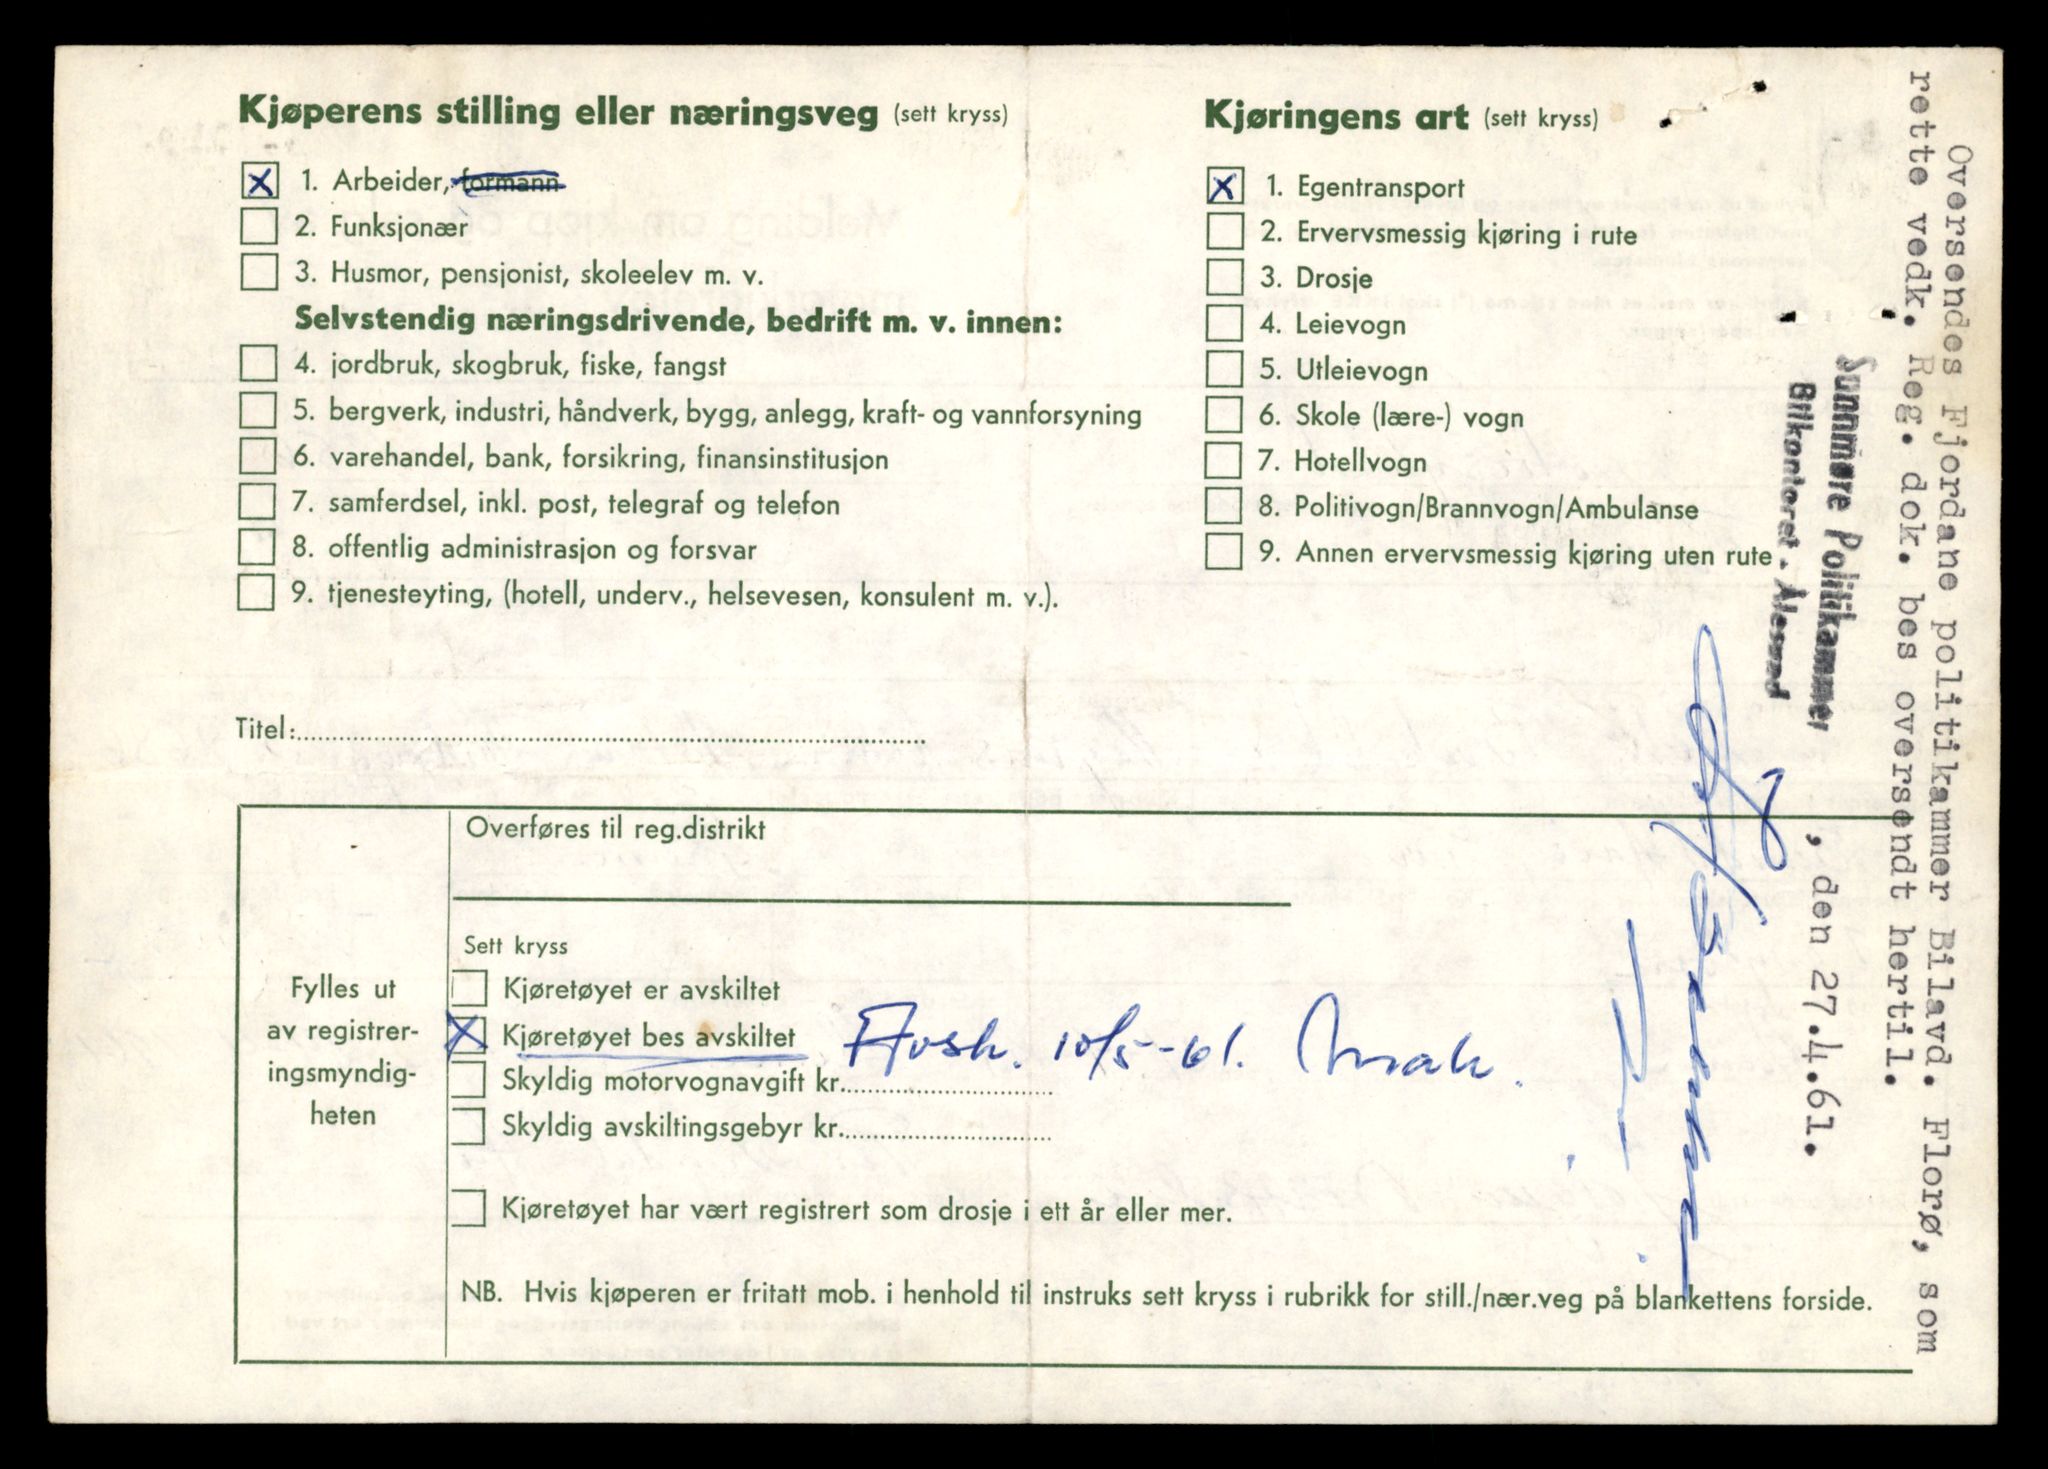 Kjøperens stilling eller næringsveg (sett kryss)
1. Arbeider, formann
2. Funksjonær
3. Husmor, pensjonist, skoleelev m. v.
Selvstendig næringsdrivende, bedrift m. v. innen:
4. jordbruk, skogbruk, fiske, fangst
5. bergverk, industri, håndverk, bygg, anlegg, kraft- og vannforsyning
6. varehandel, bank, forsikring, finansinstitusjon
7. samferdsel, inkl. post, telegraf og telefon
8. offentlig administrasjon og forsvar
9. tjenesteyting, (hotell, underv., helsevesen, konsulent m. v.).
Titel:
Kjøringens art (sett kryss)
1. Egentransport
2. Ervervsmessig kjøring i rute
3. Drosje
4. Leievogn
5. Utleievogn
6. Skole (lære-) vogn
7. Hotellvogn
8. Politivogn/Brannvogn/Ambulanse
9. Annen ervervsmessig kjøring uten rute
Fylles ut
av registrer-
ingsmyndig-
heten
Overføres til reg.distrikt
Sett kryss
Kjøretøyet er avskiltet
Kjøretøyet bes avskiltet Avsk. 10/5-61.
Skyldig motorvognavgift kr.
Skyldig avskiltingsgebyr kr.
Kjøretøyet har vært registrert som drosje i ett år eller mer.
NB. Hvis kjøperen er fritatt mob. i henhold til instruks sett kryss i rubrikk for still./nær.veg på blankettens forside.
Oversendes Fjordane politikammer Bilavd. Florø, som
rette vedk. Reg. dok. bes oversendt hertil.
Sunnmøre Politikammer
Bilkontoret - Ålesund
, den 27.4.61.